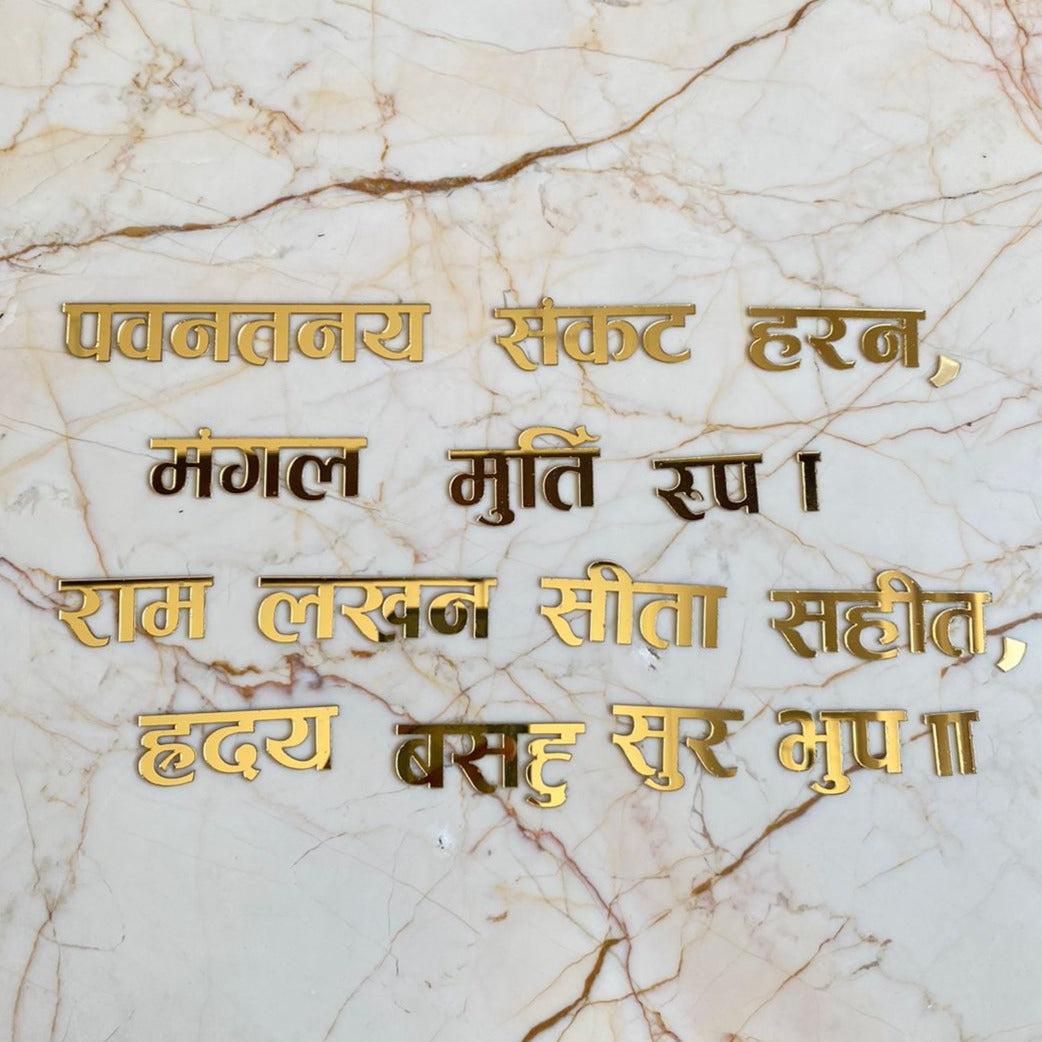 पवनतनय संकट हरन,
मंगल मुर्ति रुप ।
राम लखन सीता सहीत,
ह्रदय बसहु सुर भुप ॥